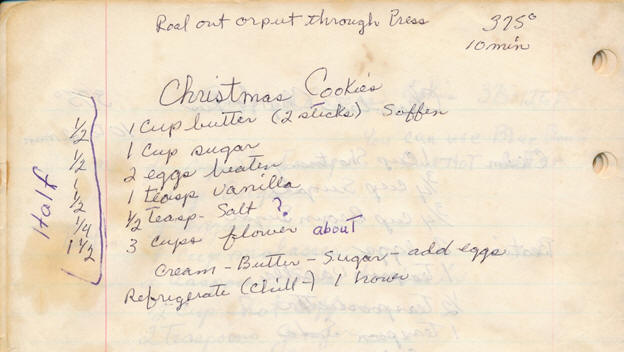 Roal out or put through Press
375°
10 min
Christmas Cookies
1 Cup butter (2 sticks) Soffen
1 Cup sugar
2 eggs beaten
1 teasp vanilla
1/2 Teasp- Salt ?
3 cups flower about
Cream - Butter - Sugar - add eggs
Refrigerate (Chill-) 1 hower
Half
1/2
1/2
1
1/2
1/4
1 1/2